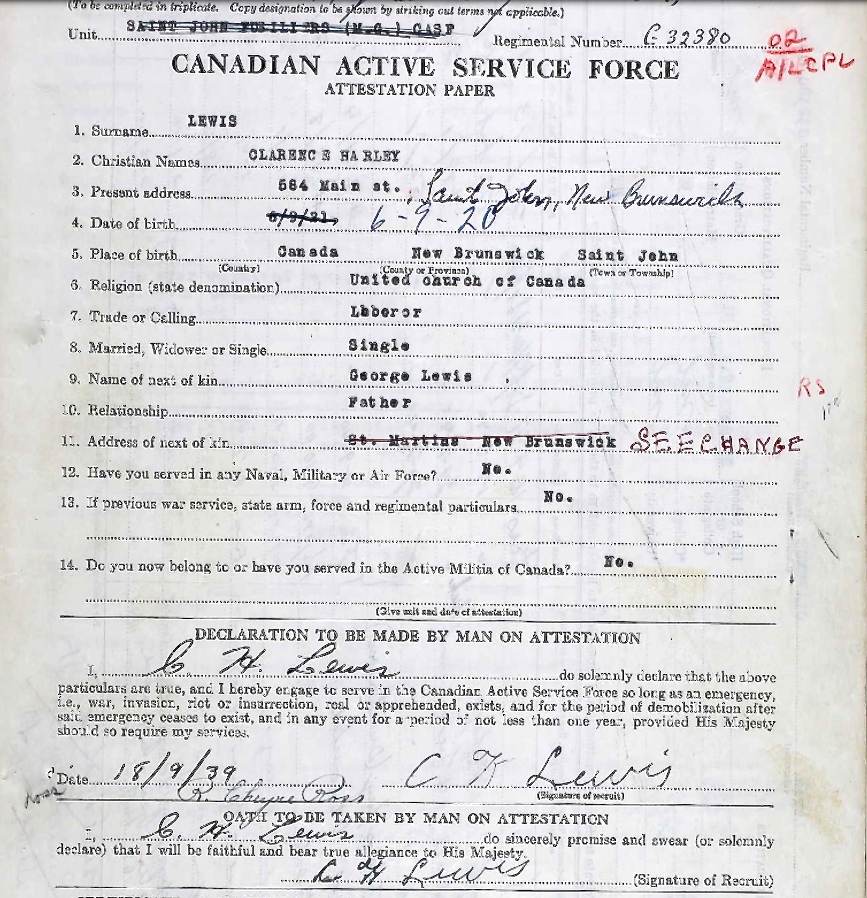 (To be completed in triplicate. Copy designation to be shown by striking out terms not applicable.)
Unit SAINT JOHN FUSILIERS (M.G.) CASF Regimental Number C 32380
A/LCPL
CANADIAN ACTIVE SERVICE FORCE
ATTESTATION PAPER
1. Surname LEWIS
2. Christian Names CLARENCE HARLEY
3. Present address 564 Main st., Saint John, New Brunswick
4. Date of birth 6/9/21, 6-9-20
5. Place of birth Canada New Brunswick Saint John
(Country) (County or Province) (Town or Township)
6. Religion (state denomination) United church of Canada
7. Trade or Calling Laboror
8. Married, Widower or Single Single
9. Name of next of kin George Lewis
RS
10. Relationship Father
11. Address of next of kin St. Martins New Brunswick SEE CHANGE
12. Have you served in any Naval, Military or Air Force? No.
13. If previous war service, state arm, force and regimental particulars No.
14. Do you now belong to or have you served in the Active Militia of Canada? No.
(Give unit and date of attestation)
DECLARATION TO BE MADE BY MAN ON ATTESTATION
I, C H Lewis do solemnly declare that the above
particulars are true, and I hereby engage to serve in the Canadian Active Service Force so long as an emergency,
i.e., war, invasion, riot or insurrection, real or apprehended, exists, and for the period of demobilization after
said emergency ceases to exist, and in any event for a period of not less than one year, provided His Majesty
should so require my services.
Date 18/9/39 C H Lewis
Ross (Signature of recruit)
OATH TO BE TAKEN BY MAN ON ATTESTATION
I, C. H. Lewis do sincerely promise and swear (or solemnly
declare) that I will be faithful and bear true allegiance to His Majesty.
C H Lewis (Signature of Recruit)